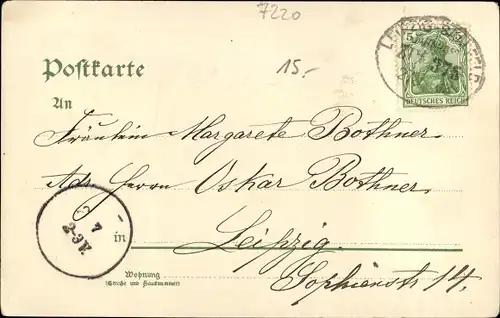 7220
15.-
Postkarte
5
DEUTSCHES REICH
An
Fräulein Margarete Bothner
Adr. Herrn Oskar Bothner
in Leipzig.
Wohnung
(Straße und Hausnummer)
Sophienstr 14.